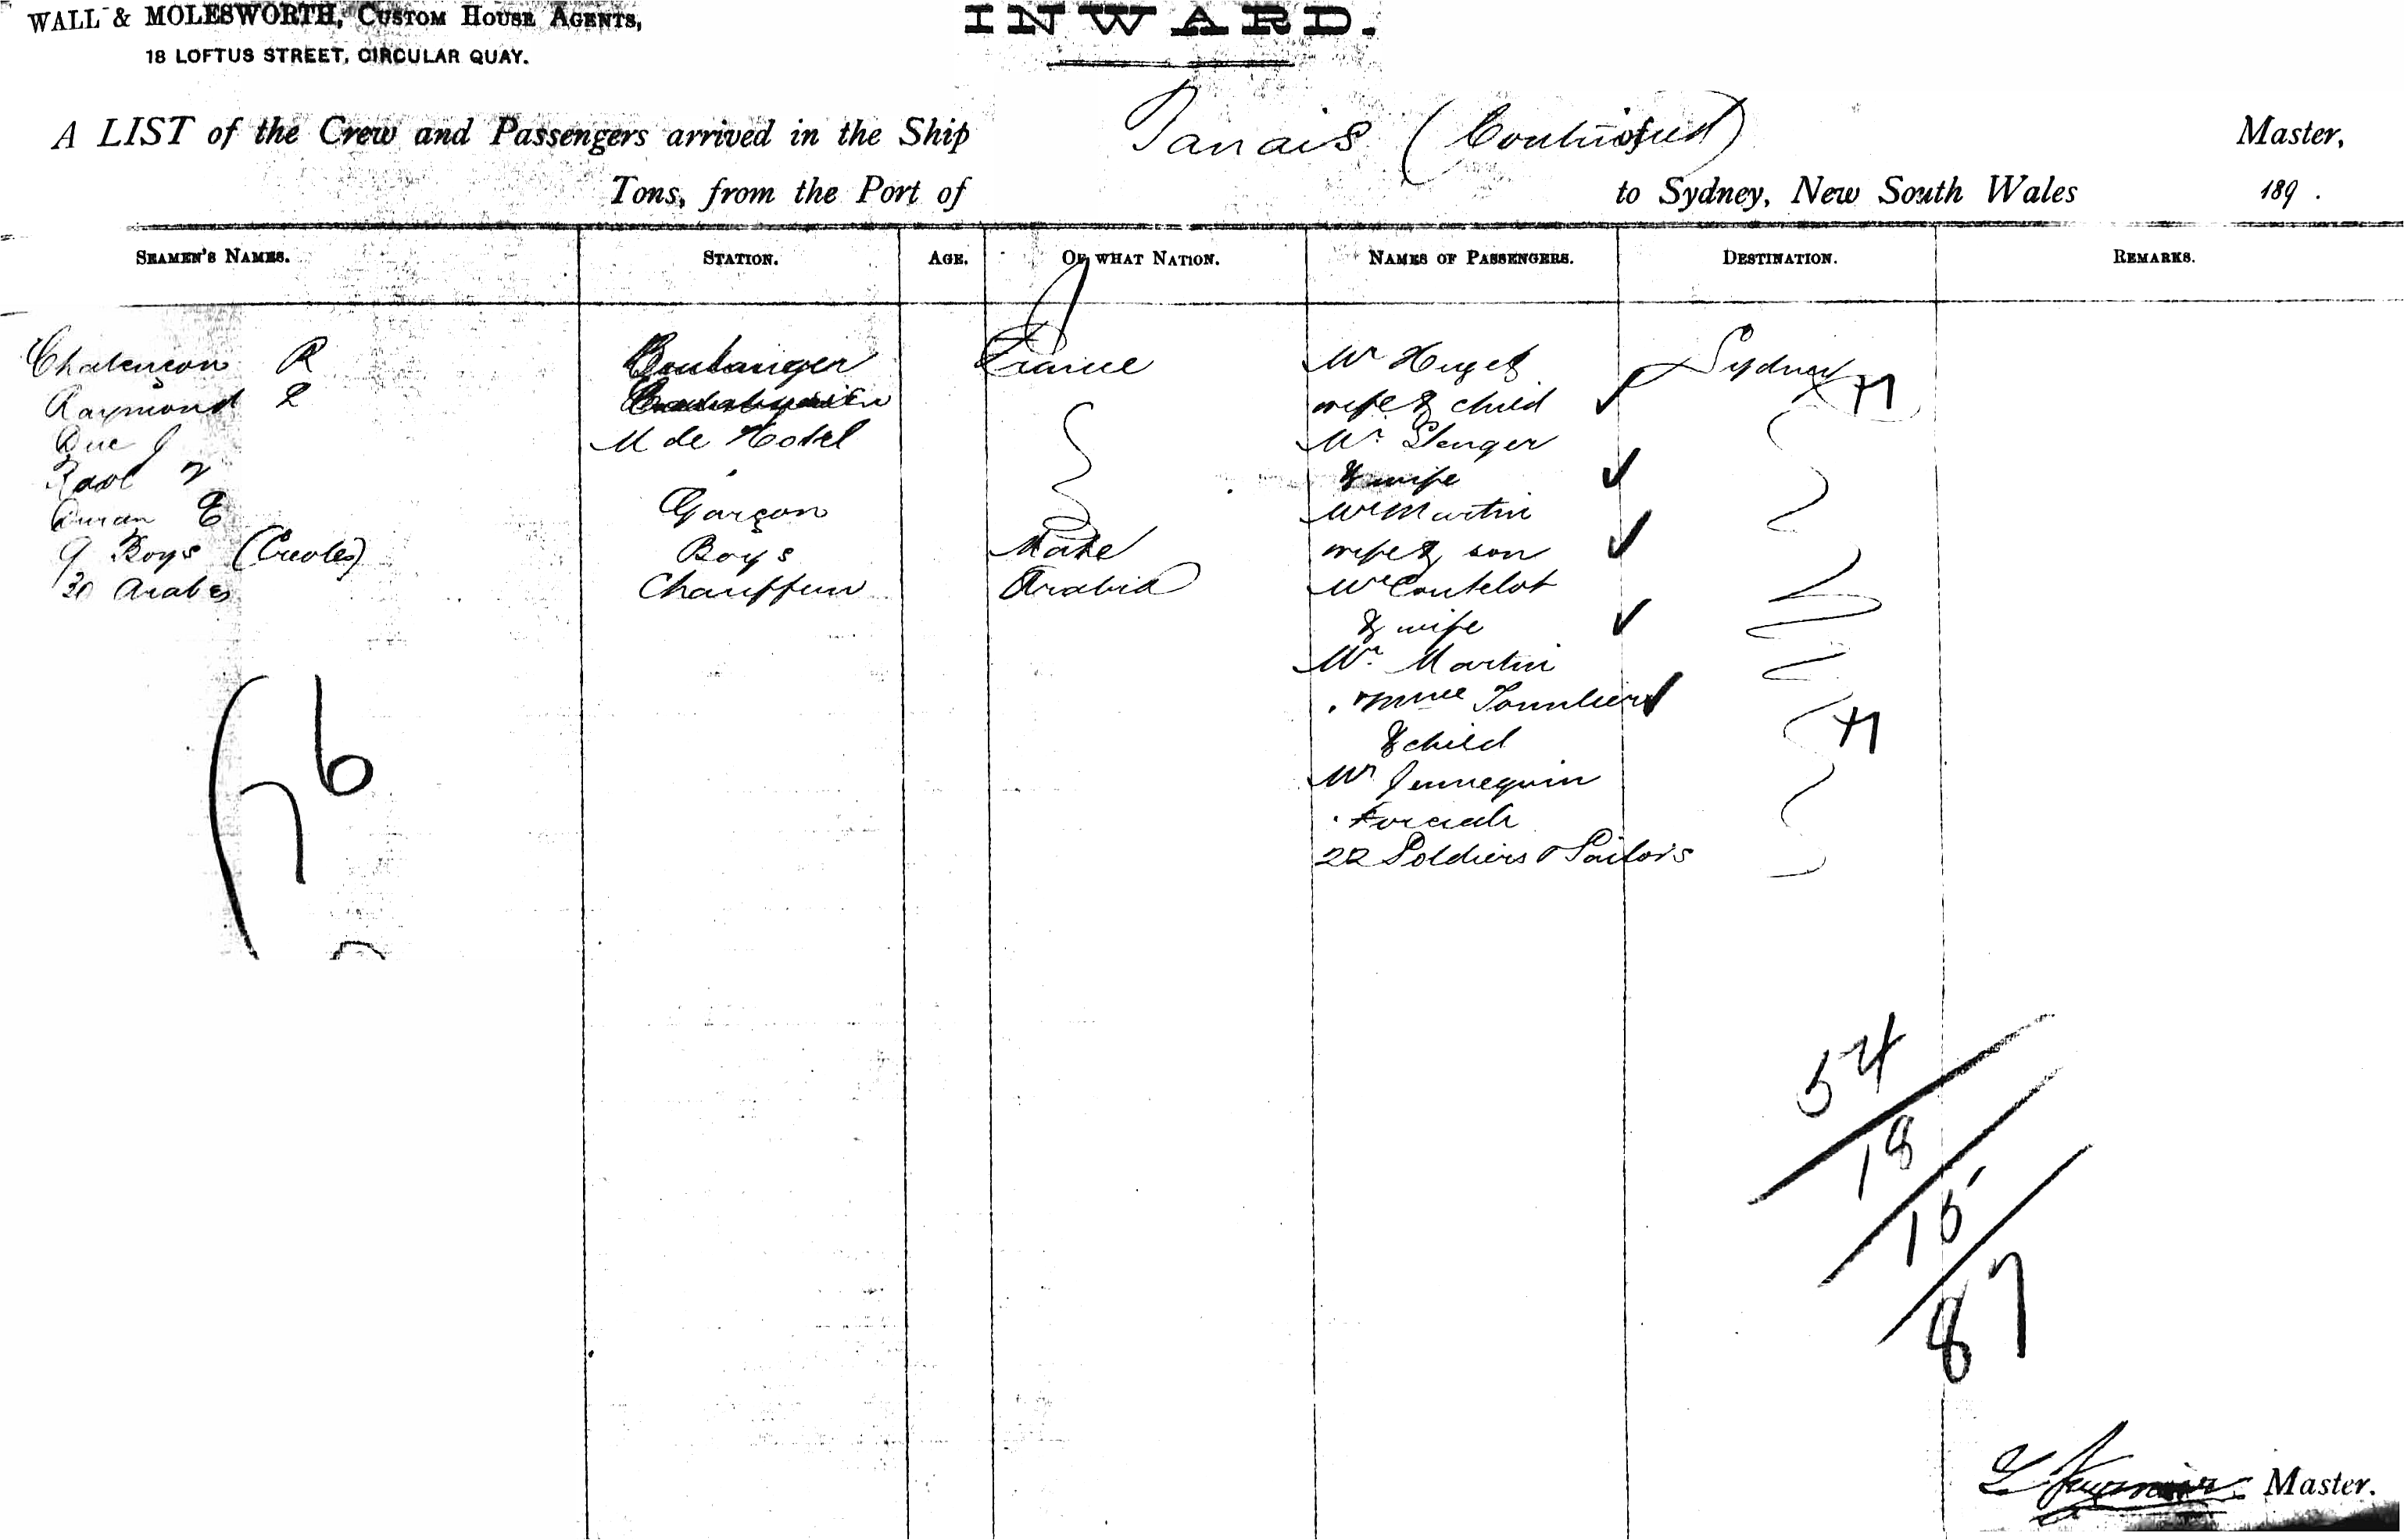 WALL & MOLESWORTH, CUSTOM HOUSE AGENTS,
18 LOFTUS STREET, CIRCULAR QUAY.
INWARD.
A LIST of the Crew and Passengers arrived in the Ship Tanais (Continued) Master,
Tons, from the Port of to Sydney, New South Wales 189 .
SEAMEN'S NAMES. STATION. AGE. OF WHAT NATION. NAMES OF PASSENGERS. DESTINATION. REMARKS.
Chalençon R Boulanger France Mr Huget Sydney
Raymond wife & child
Due J M de Hotel Mr
& wife
Duran E Garçon Mr Martin
9 Boys (Creoles) Boys Mahe wife & son
30 Arabes Chauffeurs Arabia Mr Coutelot
& wife
Mr. Martin
Mme
& child
Mr Jennequin
22 Soldiers & Sailors
76
54
18
15
87
Master.